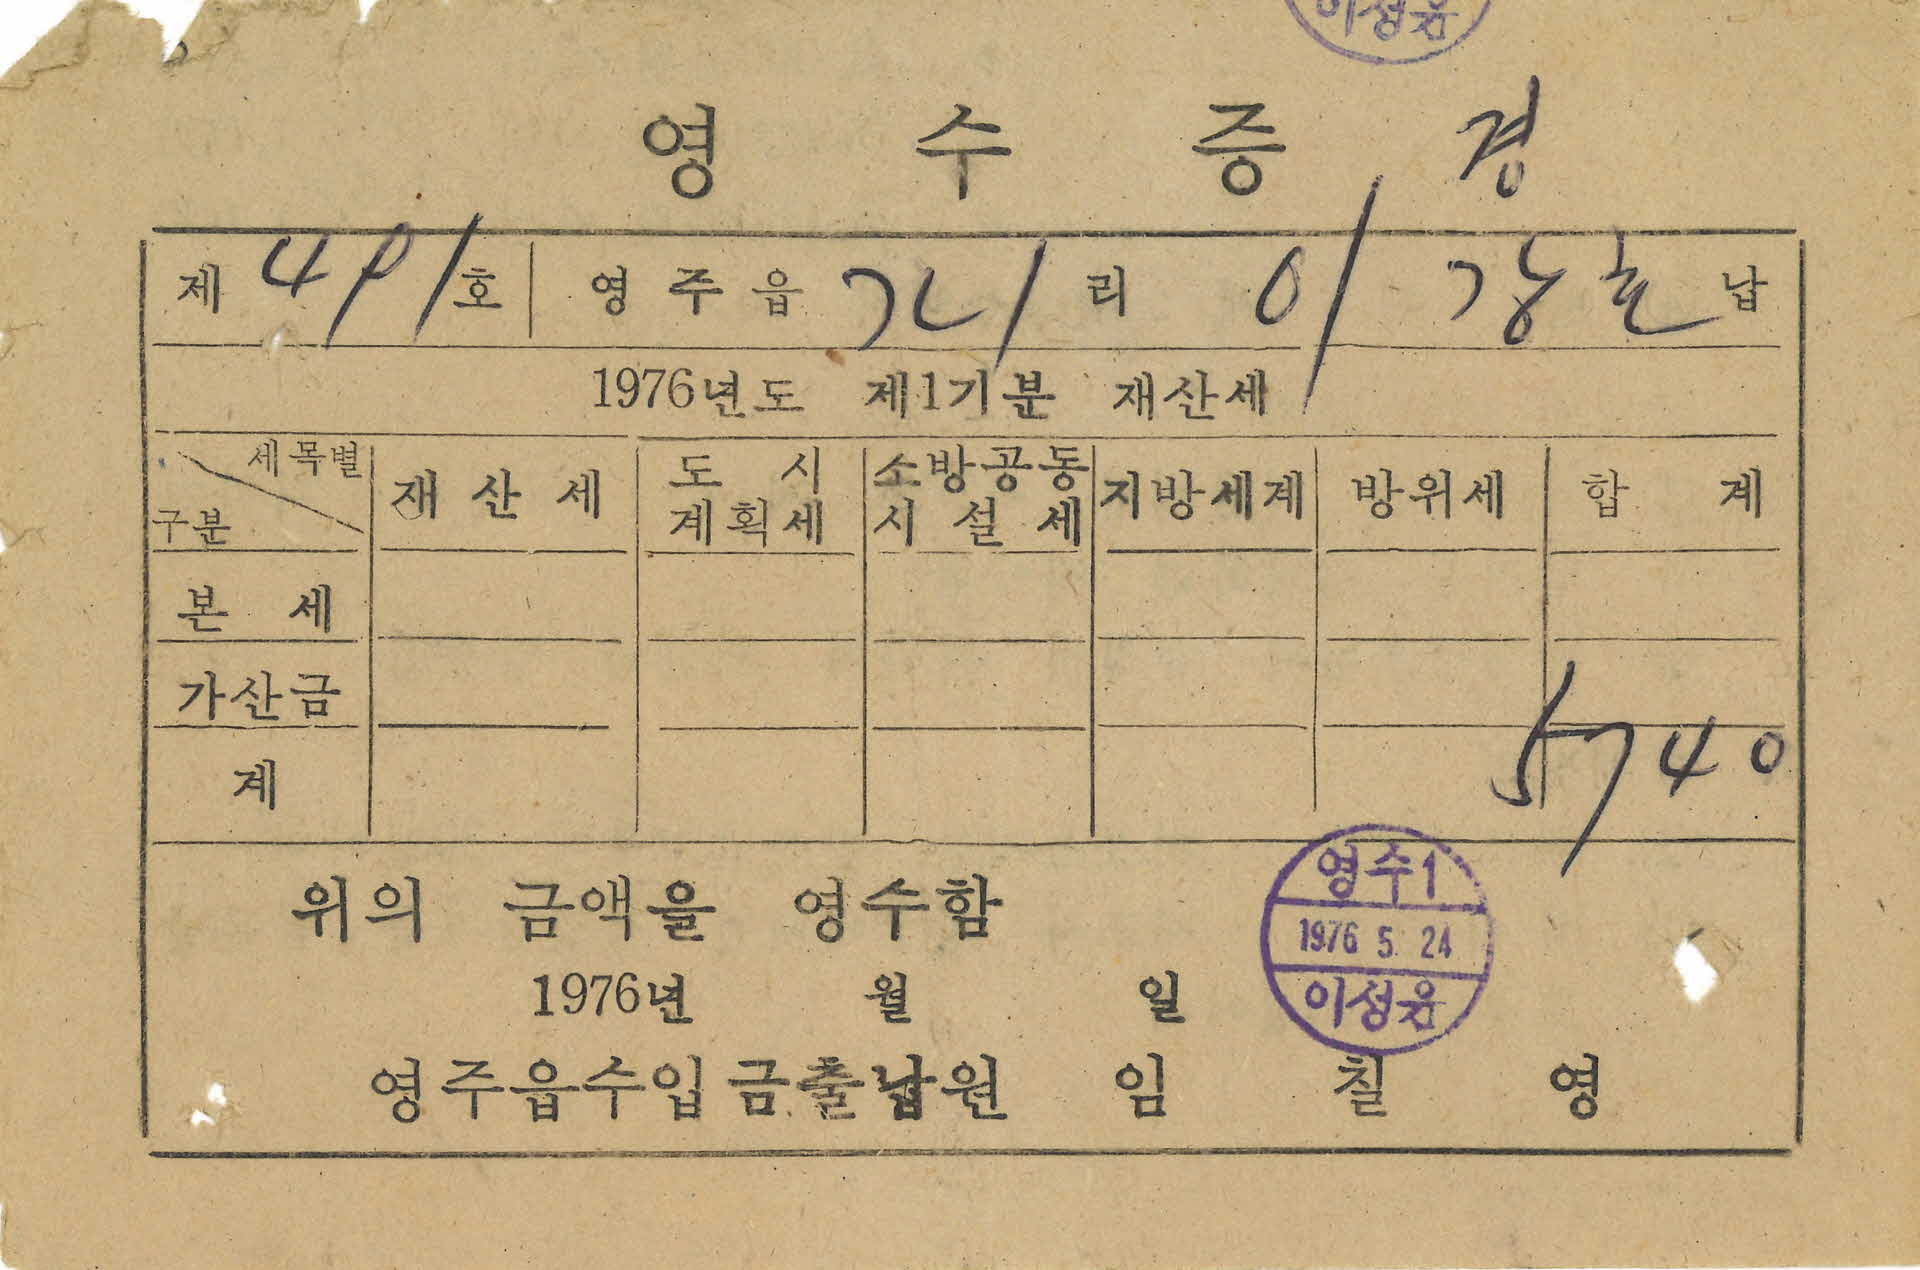 이성윤
영 수 증 경
제 491 호 영 주 읍 리 이 납
1976년도 제1기분 재산세
세목별 구분 재산세 도시계획세 소방공동시설세 지방세계 방위세 합계
본 세
가산금
계 5740
위의 금액을 영수함
영수1
1976 5. 24
이성윤
1976년 월 일
영주읍수입금출납원 임 칠 영